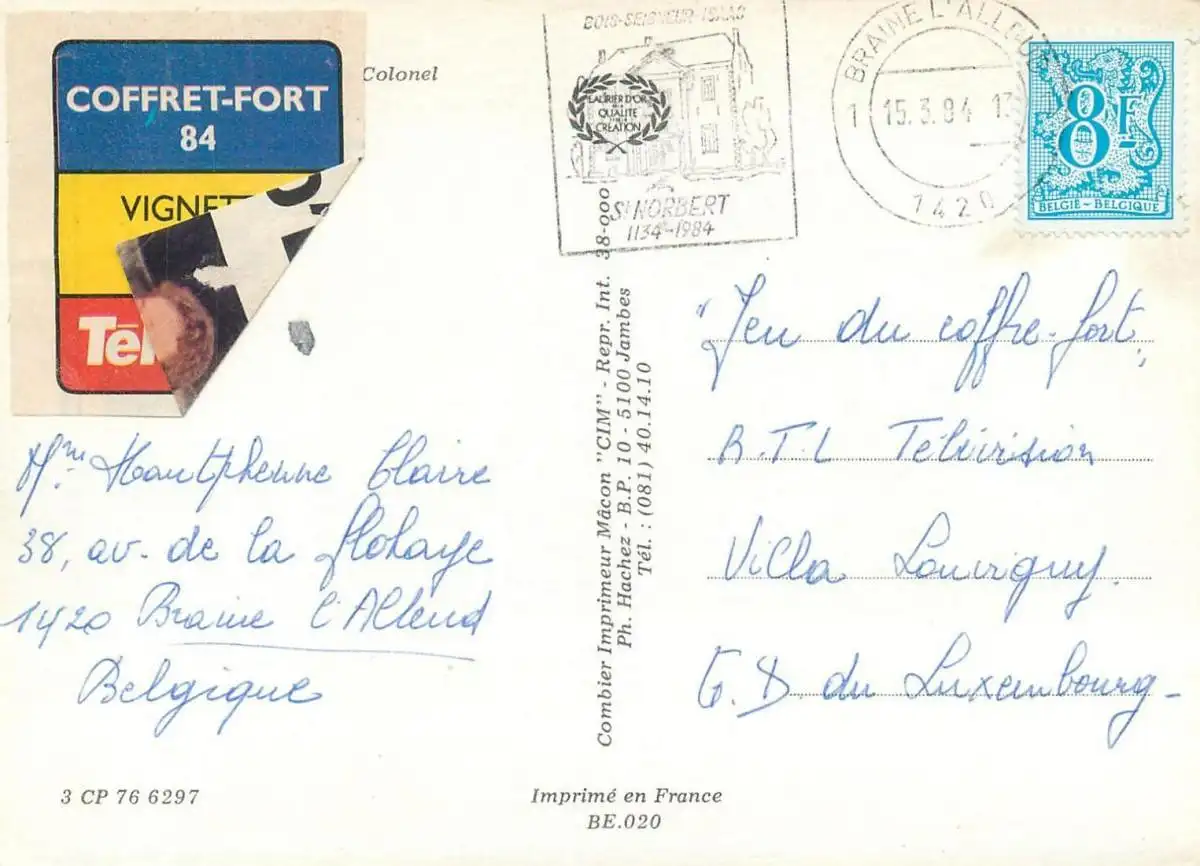 COFFRET-FORT
84
VIGNET
Tél
Colonel
BOIS-SEIGNEUR-ISAAC
LAURIER D'OR
QUALITÉ
CREATION
ST NORBERT
1134-1984
BRAINE L'ALLEU
1
15.3.84
1420
8F
BELGIË-BELGIQUE
Mme Hautphenne Claire
38, av. de la
1420 Braine l'Alleud
Belgique
Combier Imprimeur Mâcon "CIM" - Repr. Int. 38-000
Ph. Hachez - B.P. 10 - 5100 Jambes
Tél. : (081) 40.14.10
"Jeu du coffre-fort,
R.T.L Télévision
Villa Louvigny.
G.D. du Luxembourg-
3 CP 76 6297
Imprimé en France
BE.020